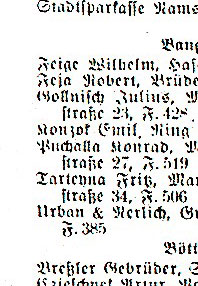 Stadtsparkasse Nams
Bau
Feige Wilhelm, Has
Feja Robert, Brüde
Gollnisch Julius, M
straße 23, F. 428
Konzok Emil, Ring
Puchalla Konrad, W
straße 27, F. 519
Tarteyna Fritz, Mar
straße 34, F. 506
Urban & Nerlich, Gr
F. 385
Bött
Breßler Gebrüder, S